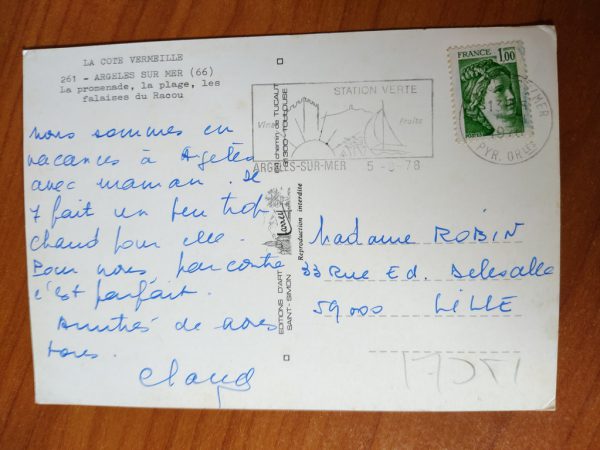 LA COTE VERMEILLE
261 - ARGELES SUR MER (66)
La promenade, la plage, les
falaises du Racou
nous sommes en
vacances à Argelès
avec maman. Il
y fait un peu trop
chaud pour elle.
Pour nous, par contre
c'est parfait.
Amitiés de nous
tous.
EDITIONS D'ART
SAINT-SIMON
chemin de TUCAUT
TOULOUSE
larrey
Reproduction interdite
STATION VERTE
Vins
Fruits
ARGELES-SUR-MER 5 -8-78
FRANCE
1,00
PYR. ORles
Madame ROBIN
33 Rue Ed. Delesalle
59000 LILLE